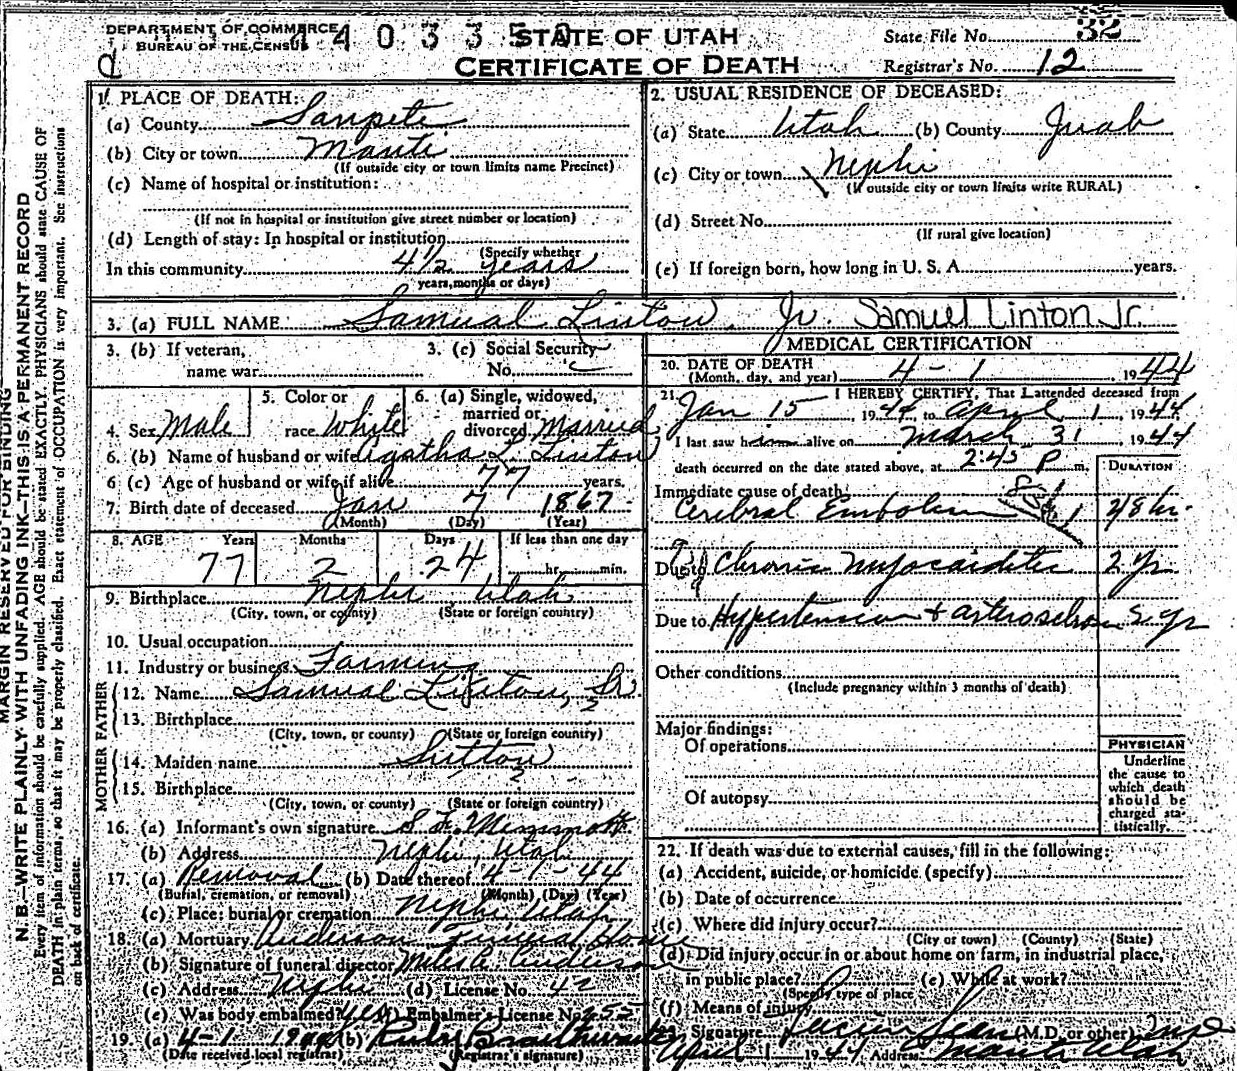 DEPARTMENT OF COMMERCE
BUREAU OF THE CENSUS
403350
STATE OF UTAH
CERTIFICATE OF DEATH
State File No. 32
Registrar's No. 12
1. PLACE OF DEATH:
(a) County Sanpete
(b) City or town Manti
(If outside city or town limits name Precinct)
(c) Name of hospital or institution:
(If not in hospital or institution give street number or location)
(d) Length of stay: In hospital or institution
(Specify whether
In this community 4½ years
years, months or days)
2. USUAL RESIDENCE OF DECEASED:
(a) State Utah (b) County Juab
(c) City or town Nephi
(If outside city or town limits write RURAL)
(d) Street No.
(If rural give location)
(e) If foreign born, how long in U. S. A. years.
3. (a) FULL NAME Samual Linton, Jr. Samuel Linton Jr.
3. (b) If veteran,
name war
3. (c) Social Security
No.
4. Sex Male
5. Color or
race White
6. (a) Single, widowed,
married or
divorced Married
6. (b) Name of husband or wife Agatha L. Linton
6 (c) Age of husband or wife if alive 77 years.
7. Birth date of deceased Jan 7 1867
(Month) (Day) (Year)
8. AGE Years Months Days If less than one day
77 2 24 hr. min.
9. Birthplace Nephi Utah
(City, town, or county) (State or foreign country)
10. Usual occupation
11. Industry or business Farming
FATHER
12. Name Samual Linton, Sr.
13. Birthplace ?
(City, town, or county) (State or foreign country)
MOTHER
14. Maiden name Sutton
15. Birthplace ?
(City, town, or county) (State or foreign country)
16. (a) Informant's own signature
(b) Address Nephi, Utah
17. (a) Removal (b) Date thereof 4-1-44
(Burial, cremation, or removal) (Month) (Day) (Year)
(c) Place: burial or cremation Nephi Utah
18. (a) Mortuary Anderson Funeral Home
(b) Signature of funeral director Anderson
(c) Address Nephi (d) License No. 42
(e) Was body embalmed? Yes (f) Embalmer's License No. 255
19. (a) 4-1 1944 (b) Ruby Braithwaite
(Date received local registrar) (Registrar's signature)
MEDICAL CERTIFICATION
20. DATE OF DEATH
(Month, day, and year) 4-1 1944
21. I HEREBY CERTIFY, That I attended deceased from
Jan 15 1944 to April 1, 1944
I last saw him alive on March 31 1944
death occurred on the date stated above, at 2:45 P m.
DURATION
Immediate cause of death
Cerebral Embolism 48 hr.
Due to Chronic Myocarditis 2 yr
Due to Hypertension + 5 yr
Other conditions
(Include pregnancy within 3 months of death)
Major findings:
Of operations
Of autopsy
PHYSICIAN
Underline
the cause to
which death
should be
charged sta-
tistically.
22. If death was due to external causes, fill in the following:
(a) Accident, suicide, or homicide (specify)
(b) Date of occurrence
(c) Where did injury occur?
(City or town) (County) (State)
(d) Did injury occur in or about home on farm, in industrial place,
in public place? (e) While at work?
(Specify type of place
(f) Means of injury
23. Signature Lucien Sears (M.D. or other)
April 1 1944 Address Manti Utah
MARGIN RESERVED FOR BINDING
N. B.—WRITE PLAINLY WITH UNFADING INK—THIS IS A PERMANENT RECORD
Every item of information should be carefully supplied. AGE should be stated EXACTLY. PHYSICIANS should state CAUSE OF
DEATH in plain terms, so that it may be properly classified. Exact statement of OCCUPATION is very important. See instructions
on back of certificate.